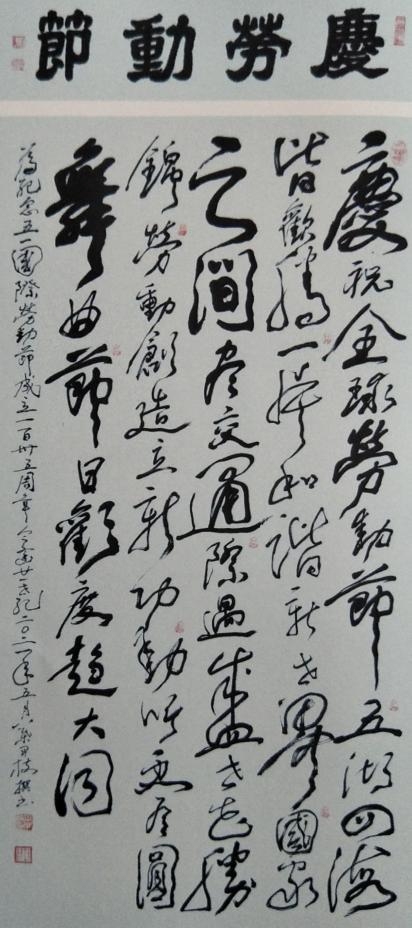 慶勞動節
慶祝全球勞動節五湖四海
皆歡騰一和諧新世界國家
之間盡交通際遇盛世花勝
錦勞動創造立新功勳更圓
舞曲節日歡度趨大同
為記念五一國際勞動節成立一百卅五周年廿一世紀二〇二一年五月撰书